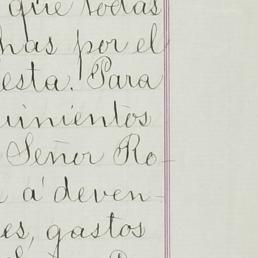 que todas
has por el
esta. Para
uinientos
Señor Ro-
e á deven-
es, gastos